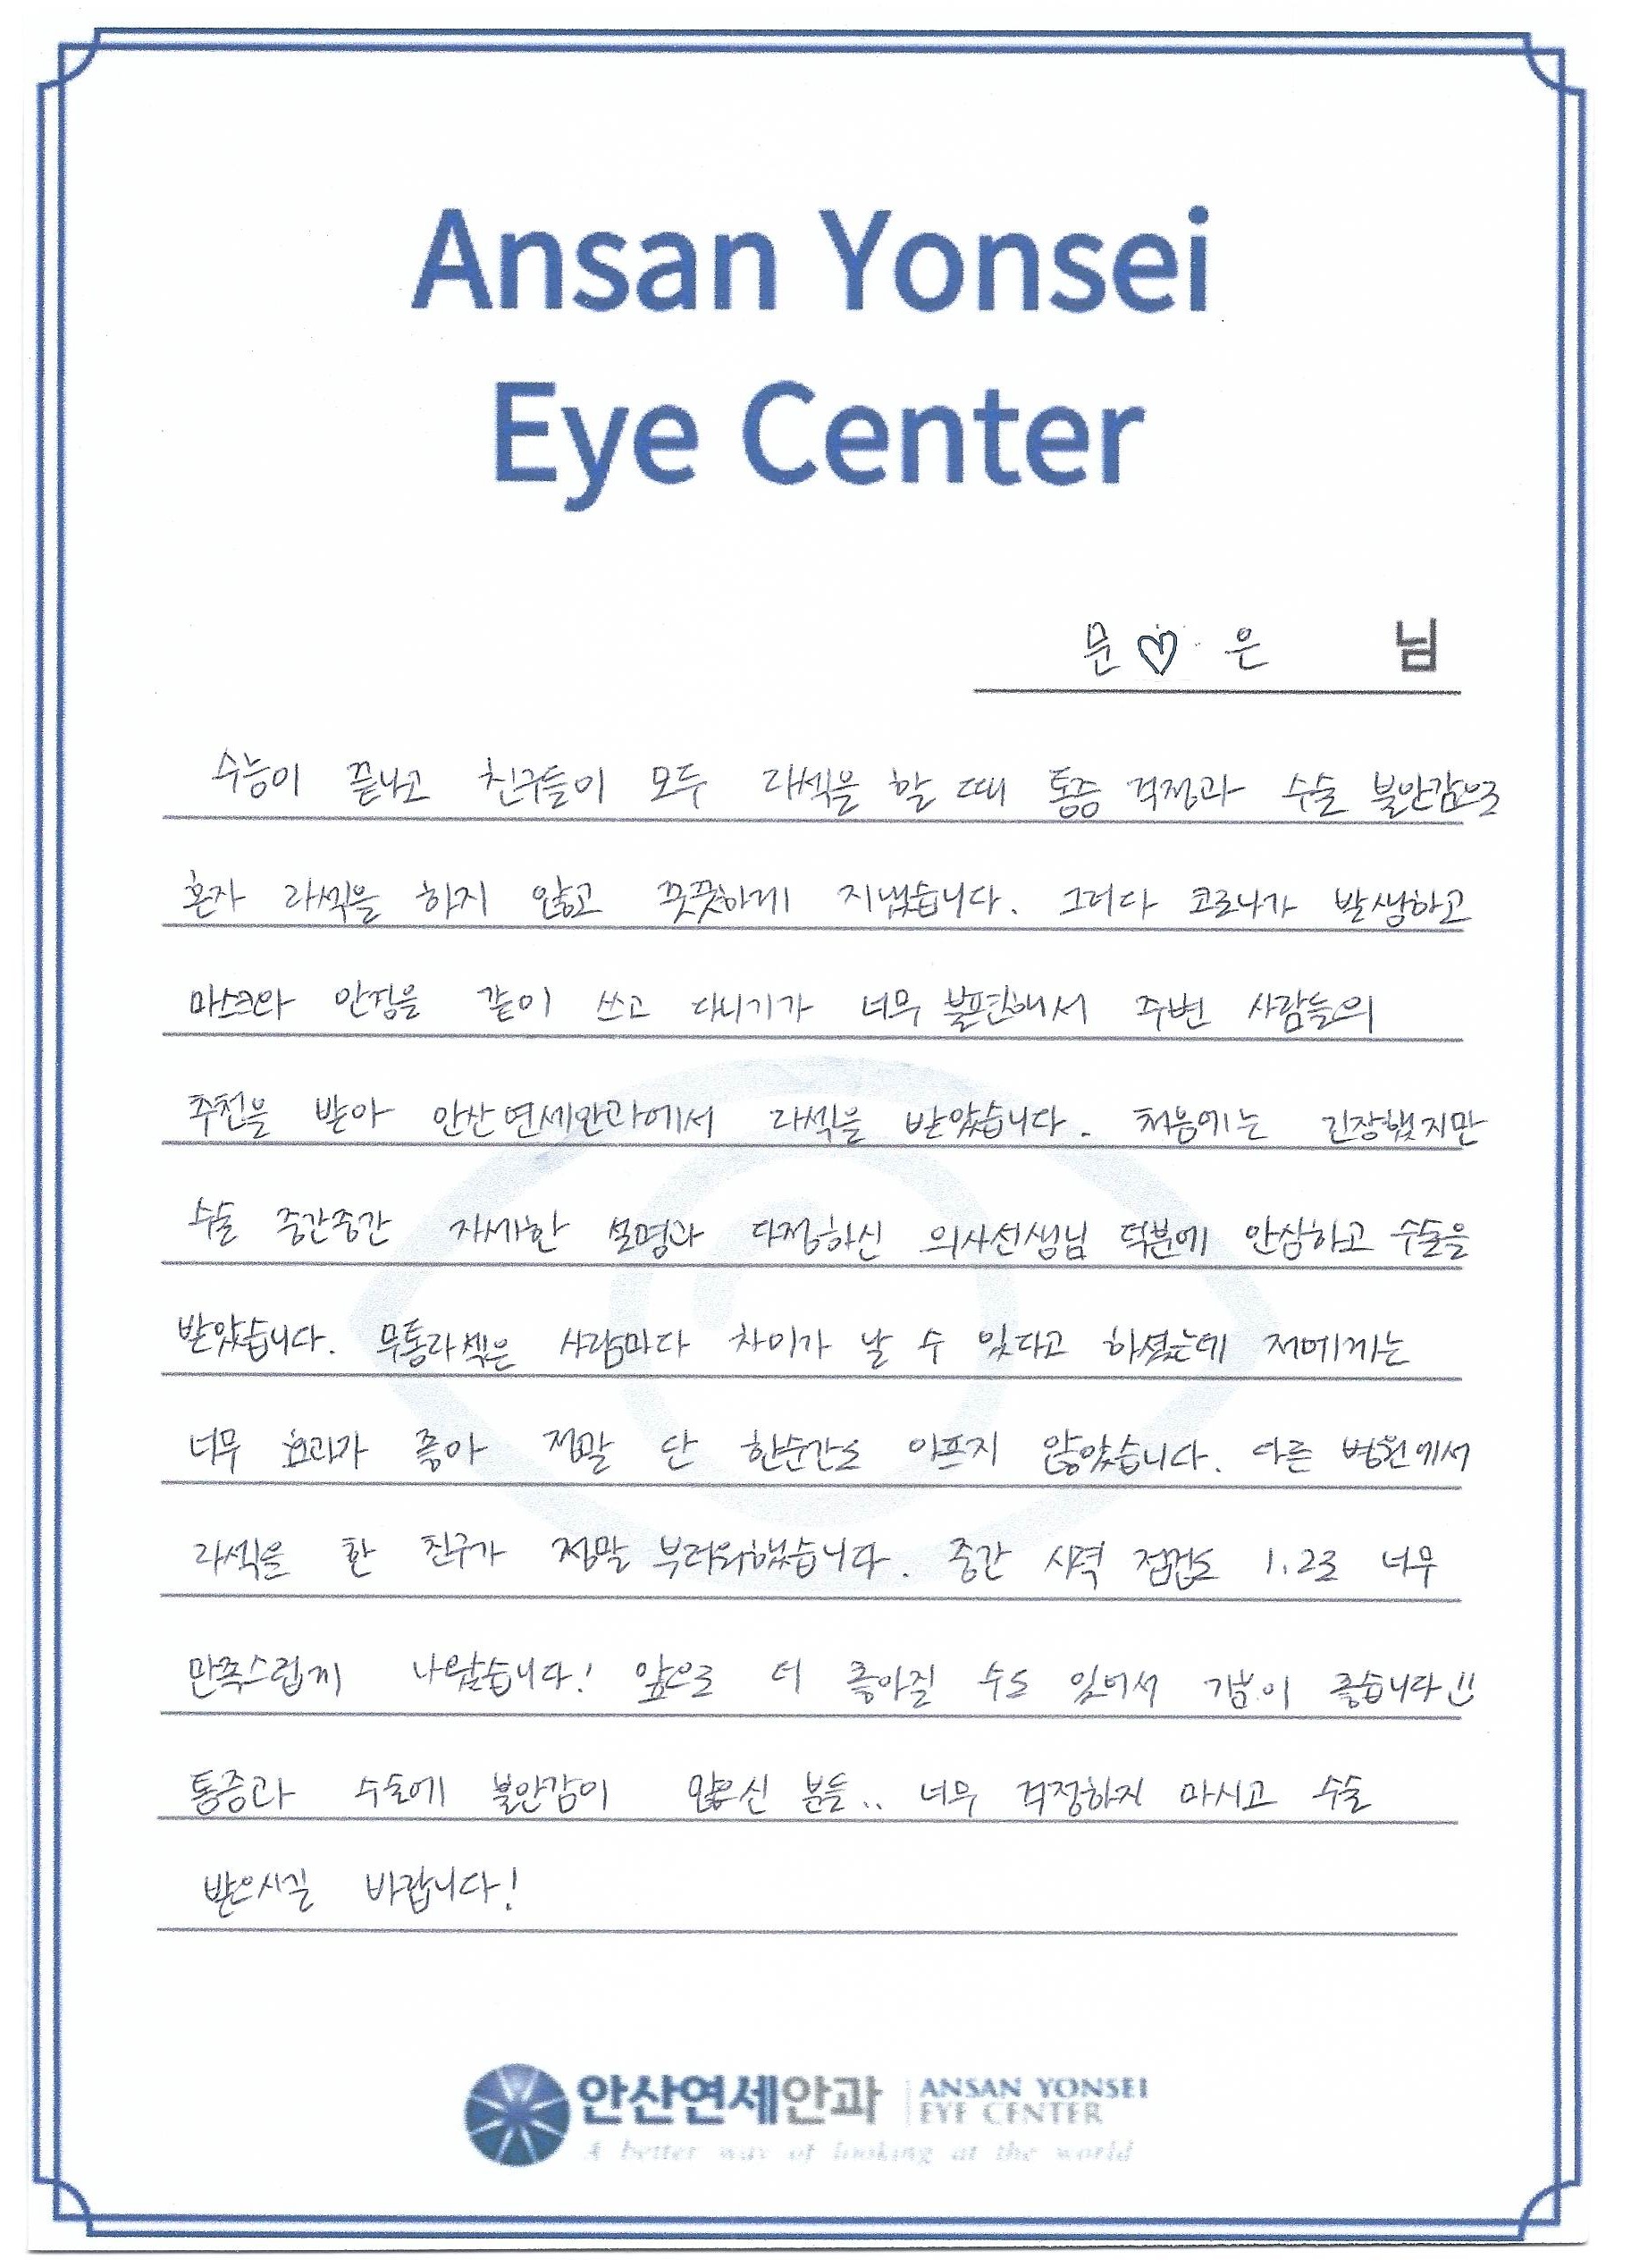 Ansan Yonsei
Eye Center
문♡은 님
수능이 끝나고 친구들이 모두 라섹을 할 때 통증 걱정과 수술 불안감으로
혼자 라섹을 하지 않고 꿋꿋하게 지냈습니다. 그러다 코로나가 발생하고
마스크와 안경을 같이 쓰고 다니기가 너무 불편해서 주변 사람들의
추천을 받아 안산연세안과에서 라섹을 받았습니다. 처음에는 긴장했지만
수술 중간중간 자세한 설명과 다정하신 의사선생님 덕분에 안심하고 수술을
받았습니다. 무통라섹은 사람마다 차이가 날 수 있다고 하셨는데 저에게는
너무 효과가 좋아 정말 단 한순간도 아프지 않았습니다. 다른 병원에서
라섹을 한 친구가 정말 부러워했습니다. 중간 시력 점검도 1.2로 너무
만족스럽게 나왔습니다! 앞으로 더 좋아질 수도 있어서 기분이 좋습니다!!
통증과 수술에 불안감이 많으신 분들.. 너무 걱정하지 마시고 수술
받으시길 바랍니다!
안산연세안과 ANSAN YONSEI
EYE CENTER
A better way of looking at the world